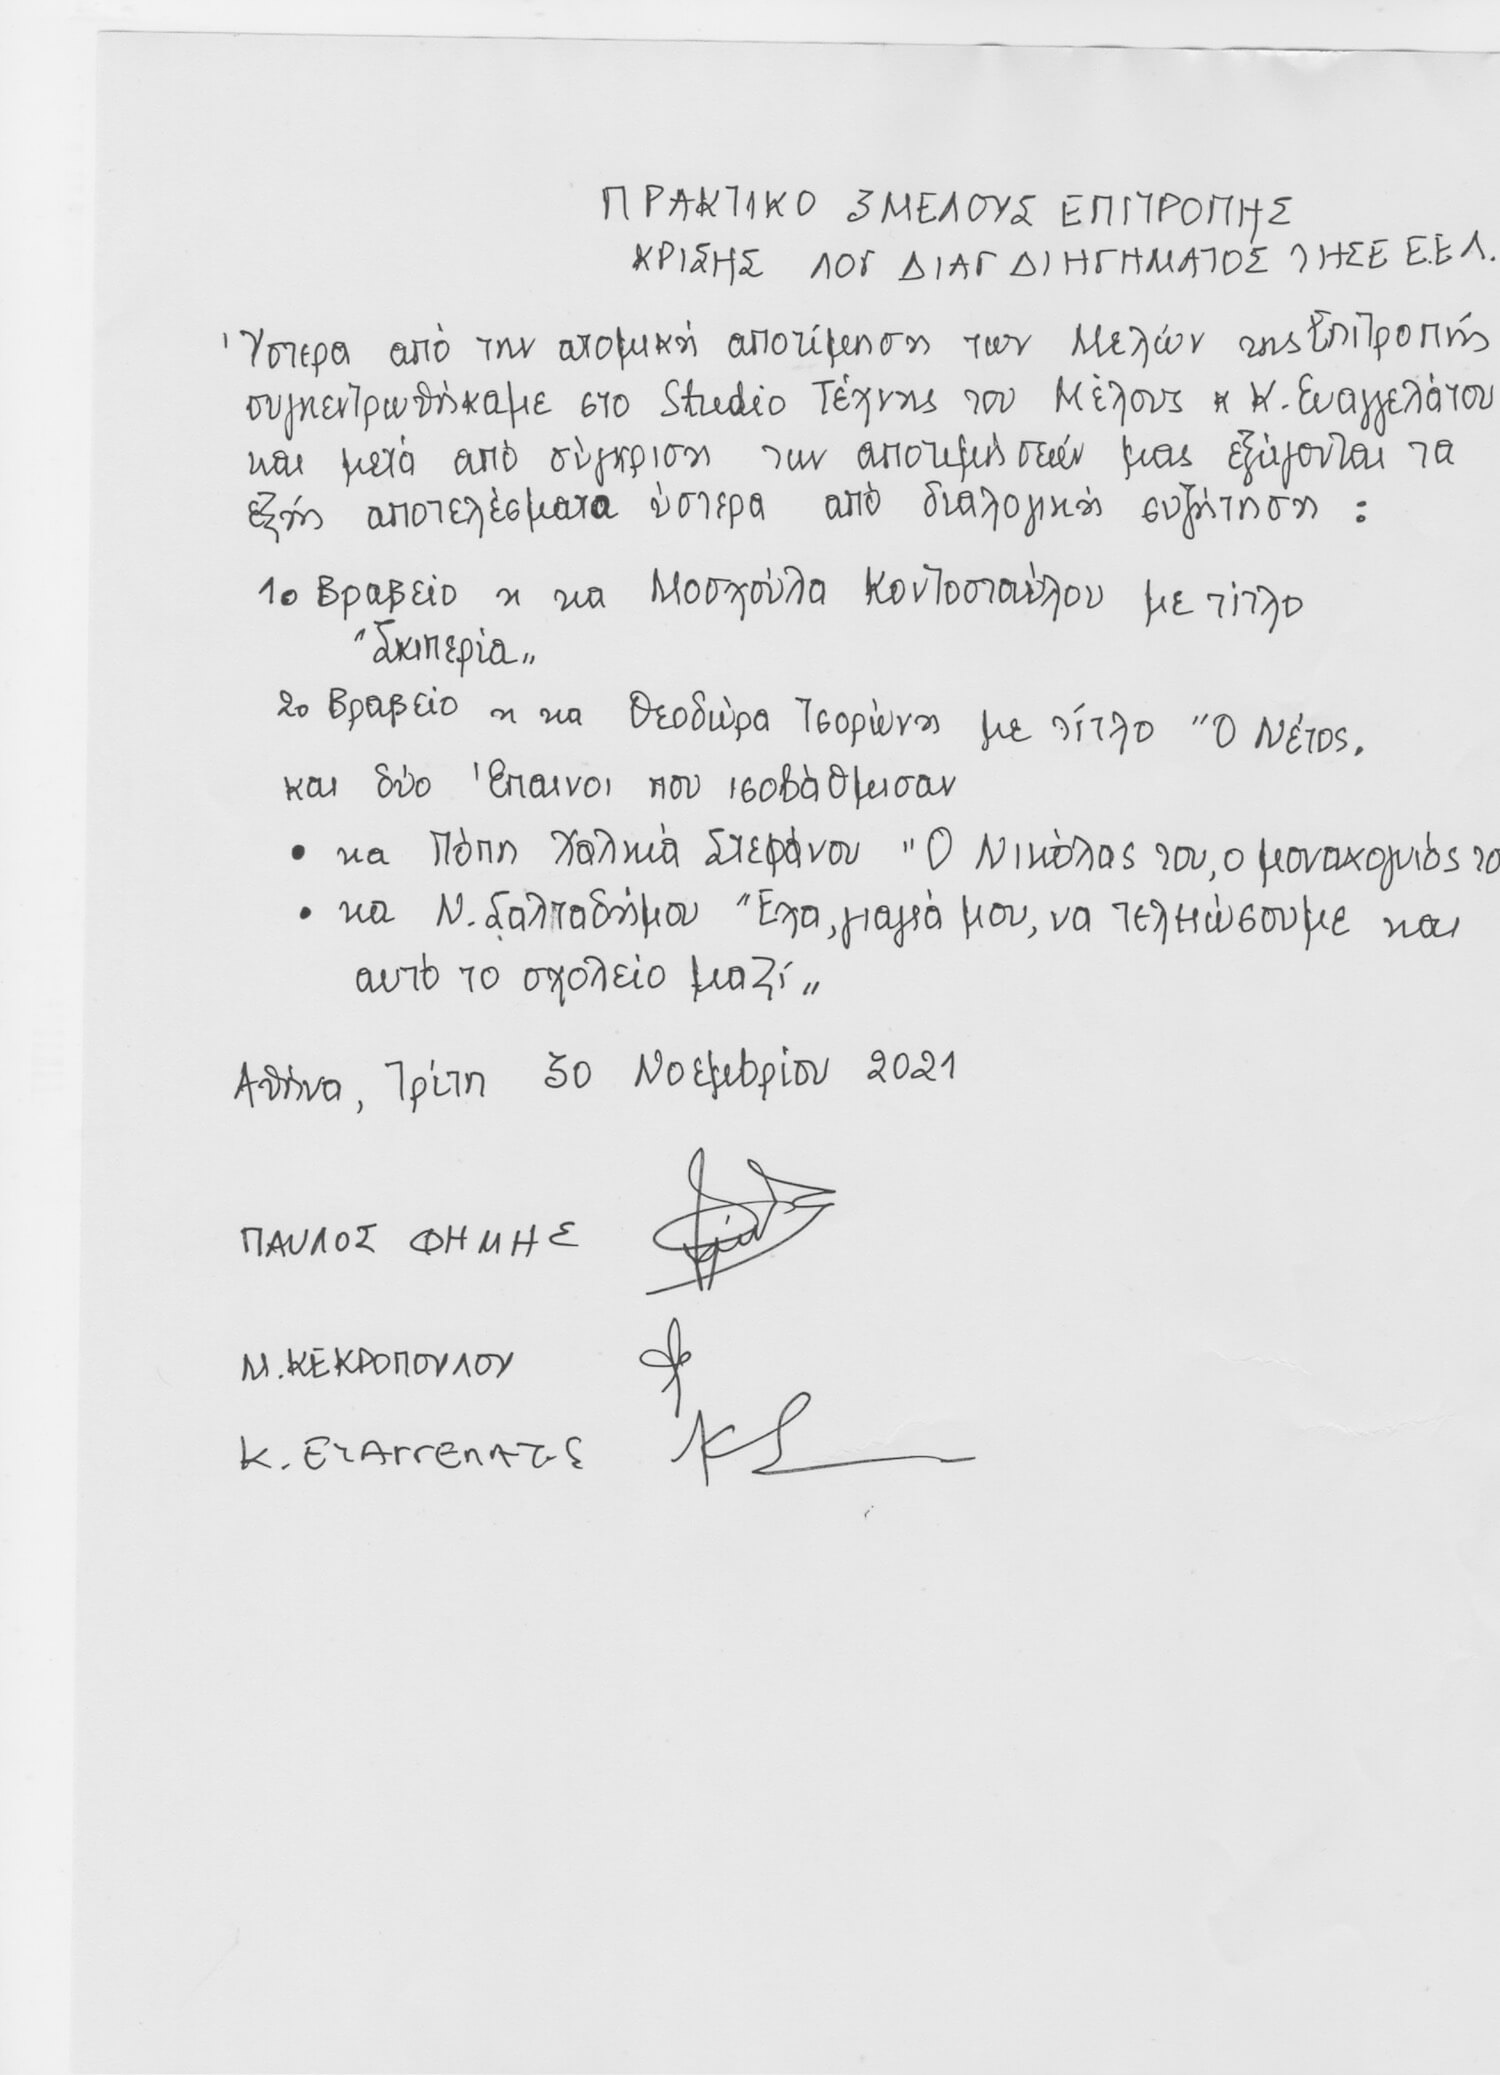 ΠΡΑΚΤΙΚΟ 3ΜΕΛΟΥΣ ΕΠΙΤΡΟΠΗΣ
ΚΡΙΣΗΣ ΛΟΓ ΔΙΑΓ ΔΙΗΓΗΜΑΤΟΣ ΤΗΣΕ Ε.Ε.Λ.
Ύστερα από την ατομική αποτίμηση των Μελών της Επιτροπής
συγκεντρωθήκαμε στο Studio Τέχνης του Μέλους κ Κ. Ευαγγελάτου
και μετά από σύγκριση των αποτιμήσεών μας εξάγονται τα
εξής αποτελέσματα ύστερα από διαλογική συζήτηση :
1ο Βραβείο η κα Μοσχούλα Κοντοσταύλου με τίτλο
"Σκιπερία„
2ο Βραβείο η κα Θεοδώρα Τσορώνη με τίτλο "Ο Νέτος.
και δύο Έπαινοι που ισοβάθμισαν
• κα Πόπη Χαλκιά Στεφάνου "Ο Νικόλας του, ο μοναχογυιός το
• κα Ν. Σαλταδήμου "Έλα, γιαγιά μου, να τελειώσουμε και
αυτό το σχολείο μαζί„
Αθήνα, Τρίτη 30 Νοεμβρίου 2021
ΠΑΥΛΟΣ ΦΗΜΗΣ
Μ. ΚΕΚΡΟΠΟΥΛΟΥ
Κ. ΕΥΑΓΓΕΛΑΤΟΣ